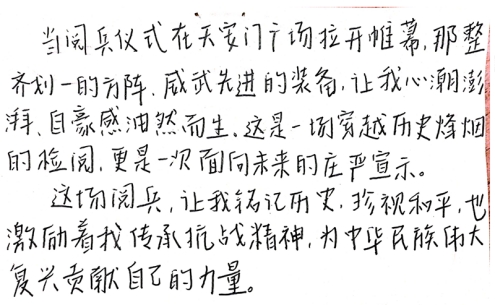 当阅兵仪式在天安门广场拉开帷幕,那整
齐划一的方阵、威武先进的装备,让我心潮澎
湃、自豪感油然而生。这是一场穿越历史烽烟
的检阅,更是一次面向未来的庄严宣示。
这场阅兵,让我铭记历史,珍视和平,也
激励着我传承抗战精神,为中华民族伟大
复兴贡献自己的力量。